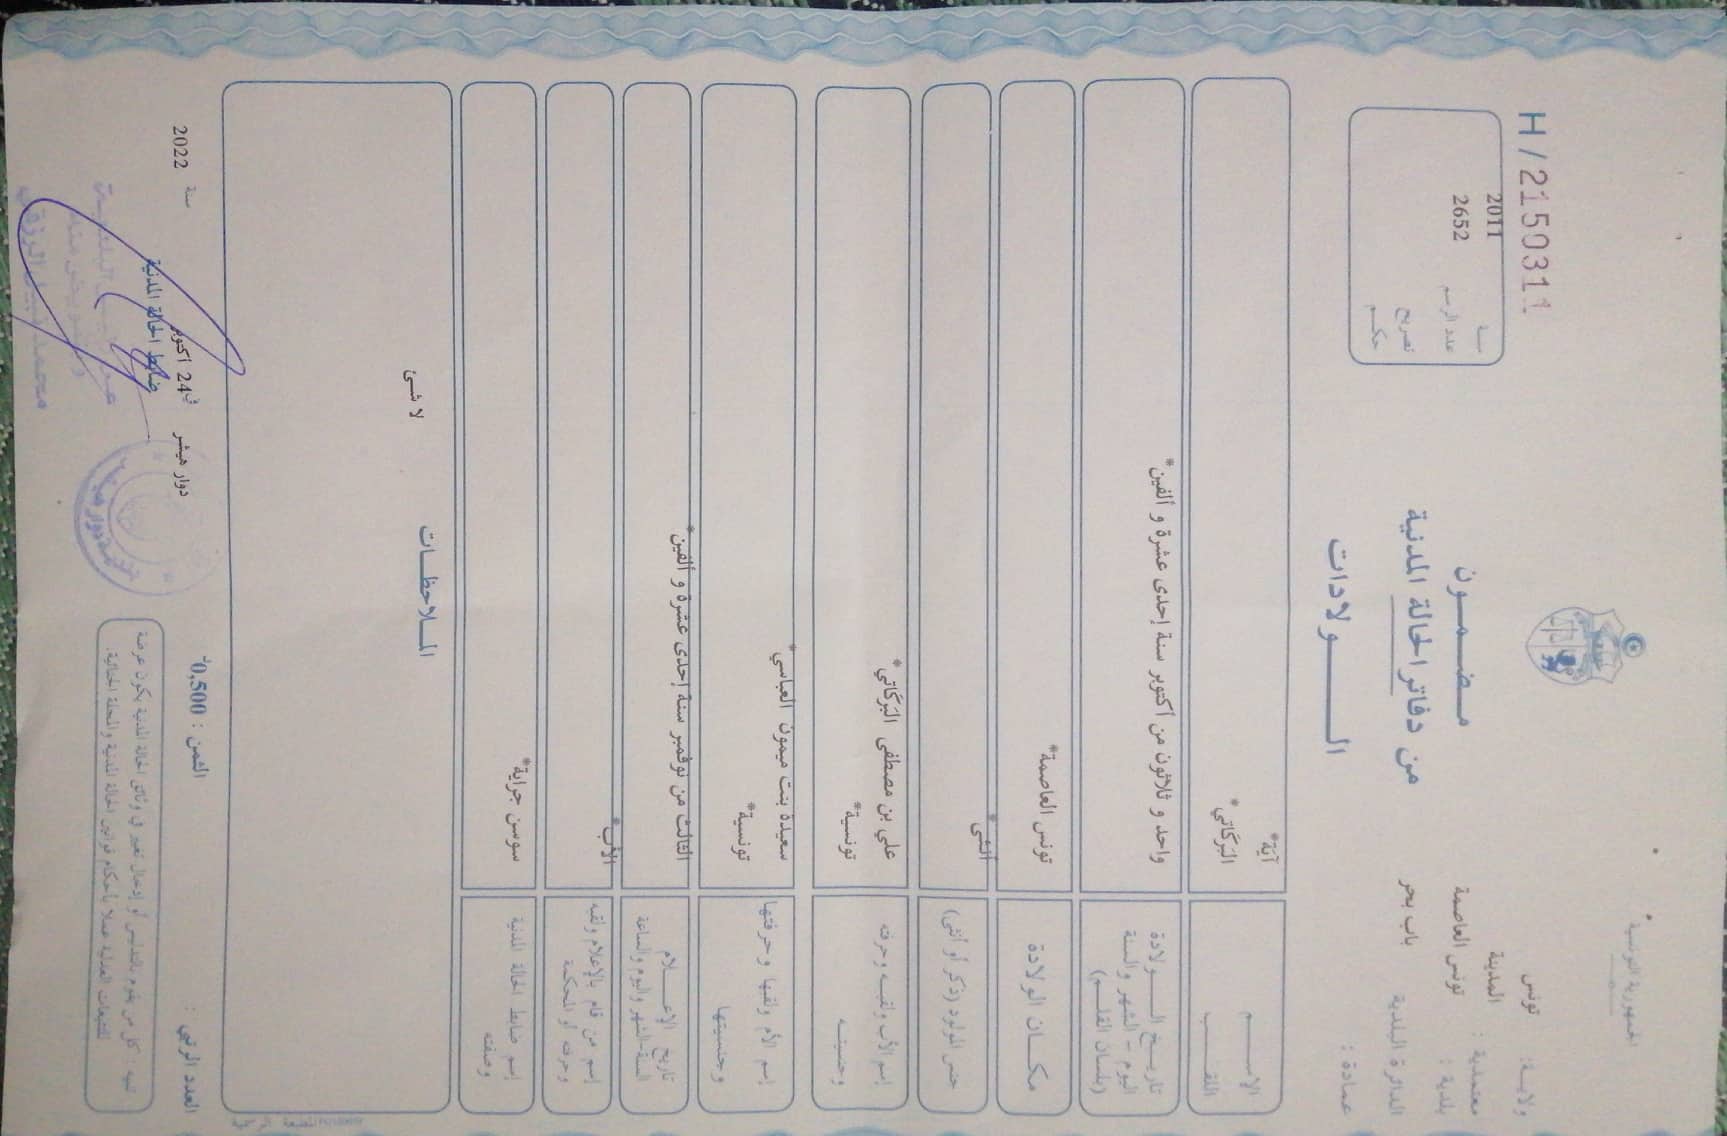 الجمهورية التونسية
ولاية: تونس
معتمدية : المدينة
بلدية : تونس العاصمة
الدائرة البلدية باب بحر
عمادة :
مضمون
من دفاتر الحالة المدنية
الولادات
H/2150311
سنة 2011
عدد الرسم 2652
تصريح
حكم
الاسم آية*
اللقب البَركَاتي*
تاريخ الولادة
اليوم - الشهر والسنة
(بلسان القلم)
واحد و ثلاثون من أكتوبر سنة إحدى عشرة و ألفين*
مكان الولادة تونس العاصمة*
جنس المولود (ذكر أو أنثى) أنثى*
إسم الأب ولقبه وحرفته
وجنسيته
علي بن مصطفى البَركَاتي*
تونسية*
إسم الأم ولقبها وحرفتها
وجنسيتها
سعيدة بنت ميمون العباسي*
تونسية*
تاريخ الإعلام
السنة-الشهر واليوم والساعة
الثالث من نوفمبر سنة إحدى عشرة و ألفين*
إسم من قام بالإعلام ولقبه
وحرفته أو المحكمة
الأب*
إسم ضابط الحالة المدنية
وصفته
سوسن جراية*
الملاحظات
لا شئ
العدد الرتبي :
الثمن : 0,500د
دوار هيشر في 24 أكتوبر سنة 2022
ضابط الحالة المدنية
تنبيه : كل من يقوم بالتدليس أو إدخال تغيير في وثائق الحالة المدنية يكون عرضة
للتتبعات العدلية عملا بأحكام قوانين الحالة المدنية والمجلة الجنائية.
المطبعة الرسمية